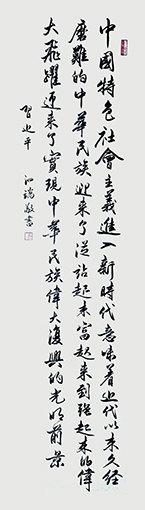 中國特色社會主義進入新時代意味着近代以来久经
磨難的中華民族迎来了從站起来富起来到强起来的偉
大飛躍迎来了實現中華民族偉大復興的光明前景
習近平
敬書